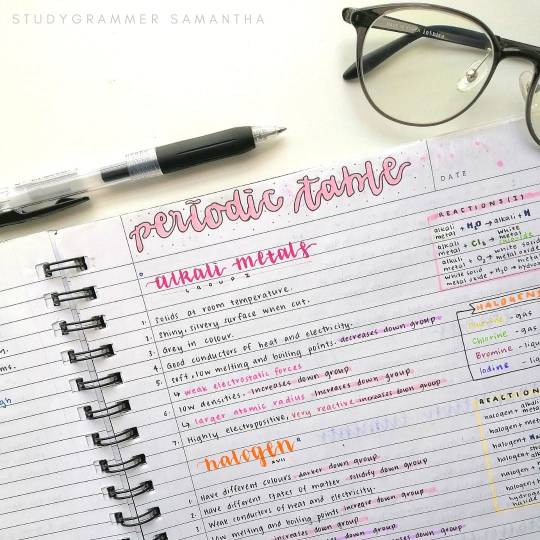 STUDYGRAMMER SAMANTHA
periodic table
DATE
alkali metals
GROUP I
1. Solids at room temperature.
2. Shiny, silvery surface when cut.
3. Grey in colour.
4. Good conductors of heat and electricity.
5. Soft, low melting and boiling points. decreases down group
↳ weak electrostatic forces
6. low densities. Increases down group
↳ larger atomic radius Increases down group
7. Highly electropositive, very reactive increases down group
halogen
1. Have different colours darker down group
2. Have different states of matter solidify down group
3. Weak conductors of heat and electricity.
low melting and boiling points increase down group
REACTIONS (I)
alkali metal + H₂O → alkali + H
alkali metal + Cl₂ → white metal chloride
alkali metal + O₂ → white solid metal
white solid metal oxide + H₂O → metal hydro
HALOGENS
Fluoride - gas
Chlorine - gas
Bromine - liq
Iodine - li
REACTION
halogen + alkali metal
halogen + met
halogen +
halogen +
halogen +
halogen + h
hydrogen halide
ms.